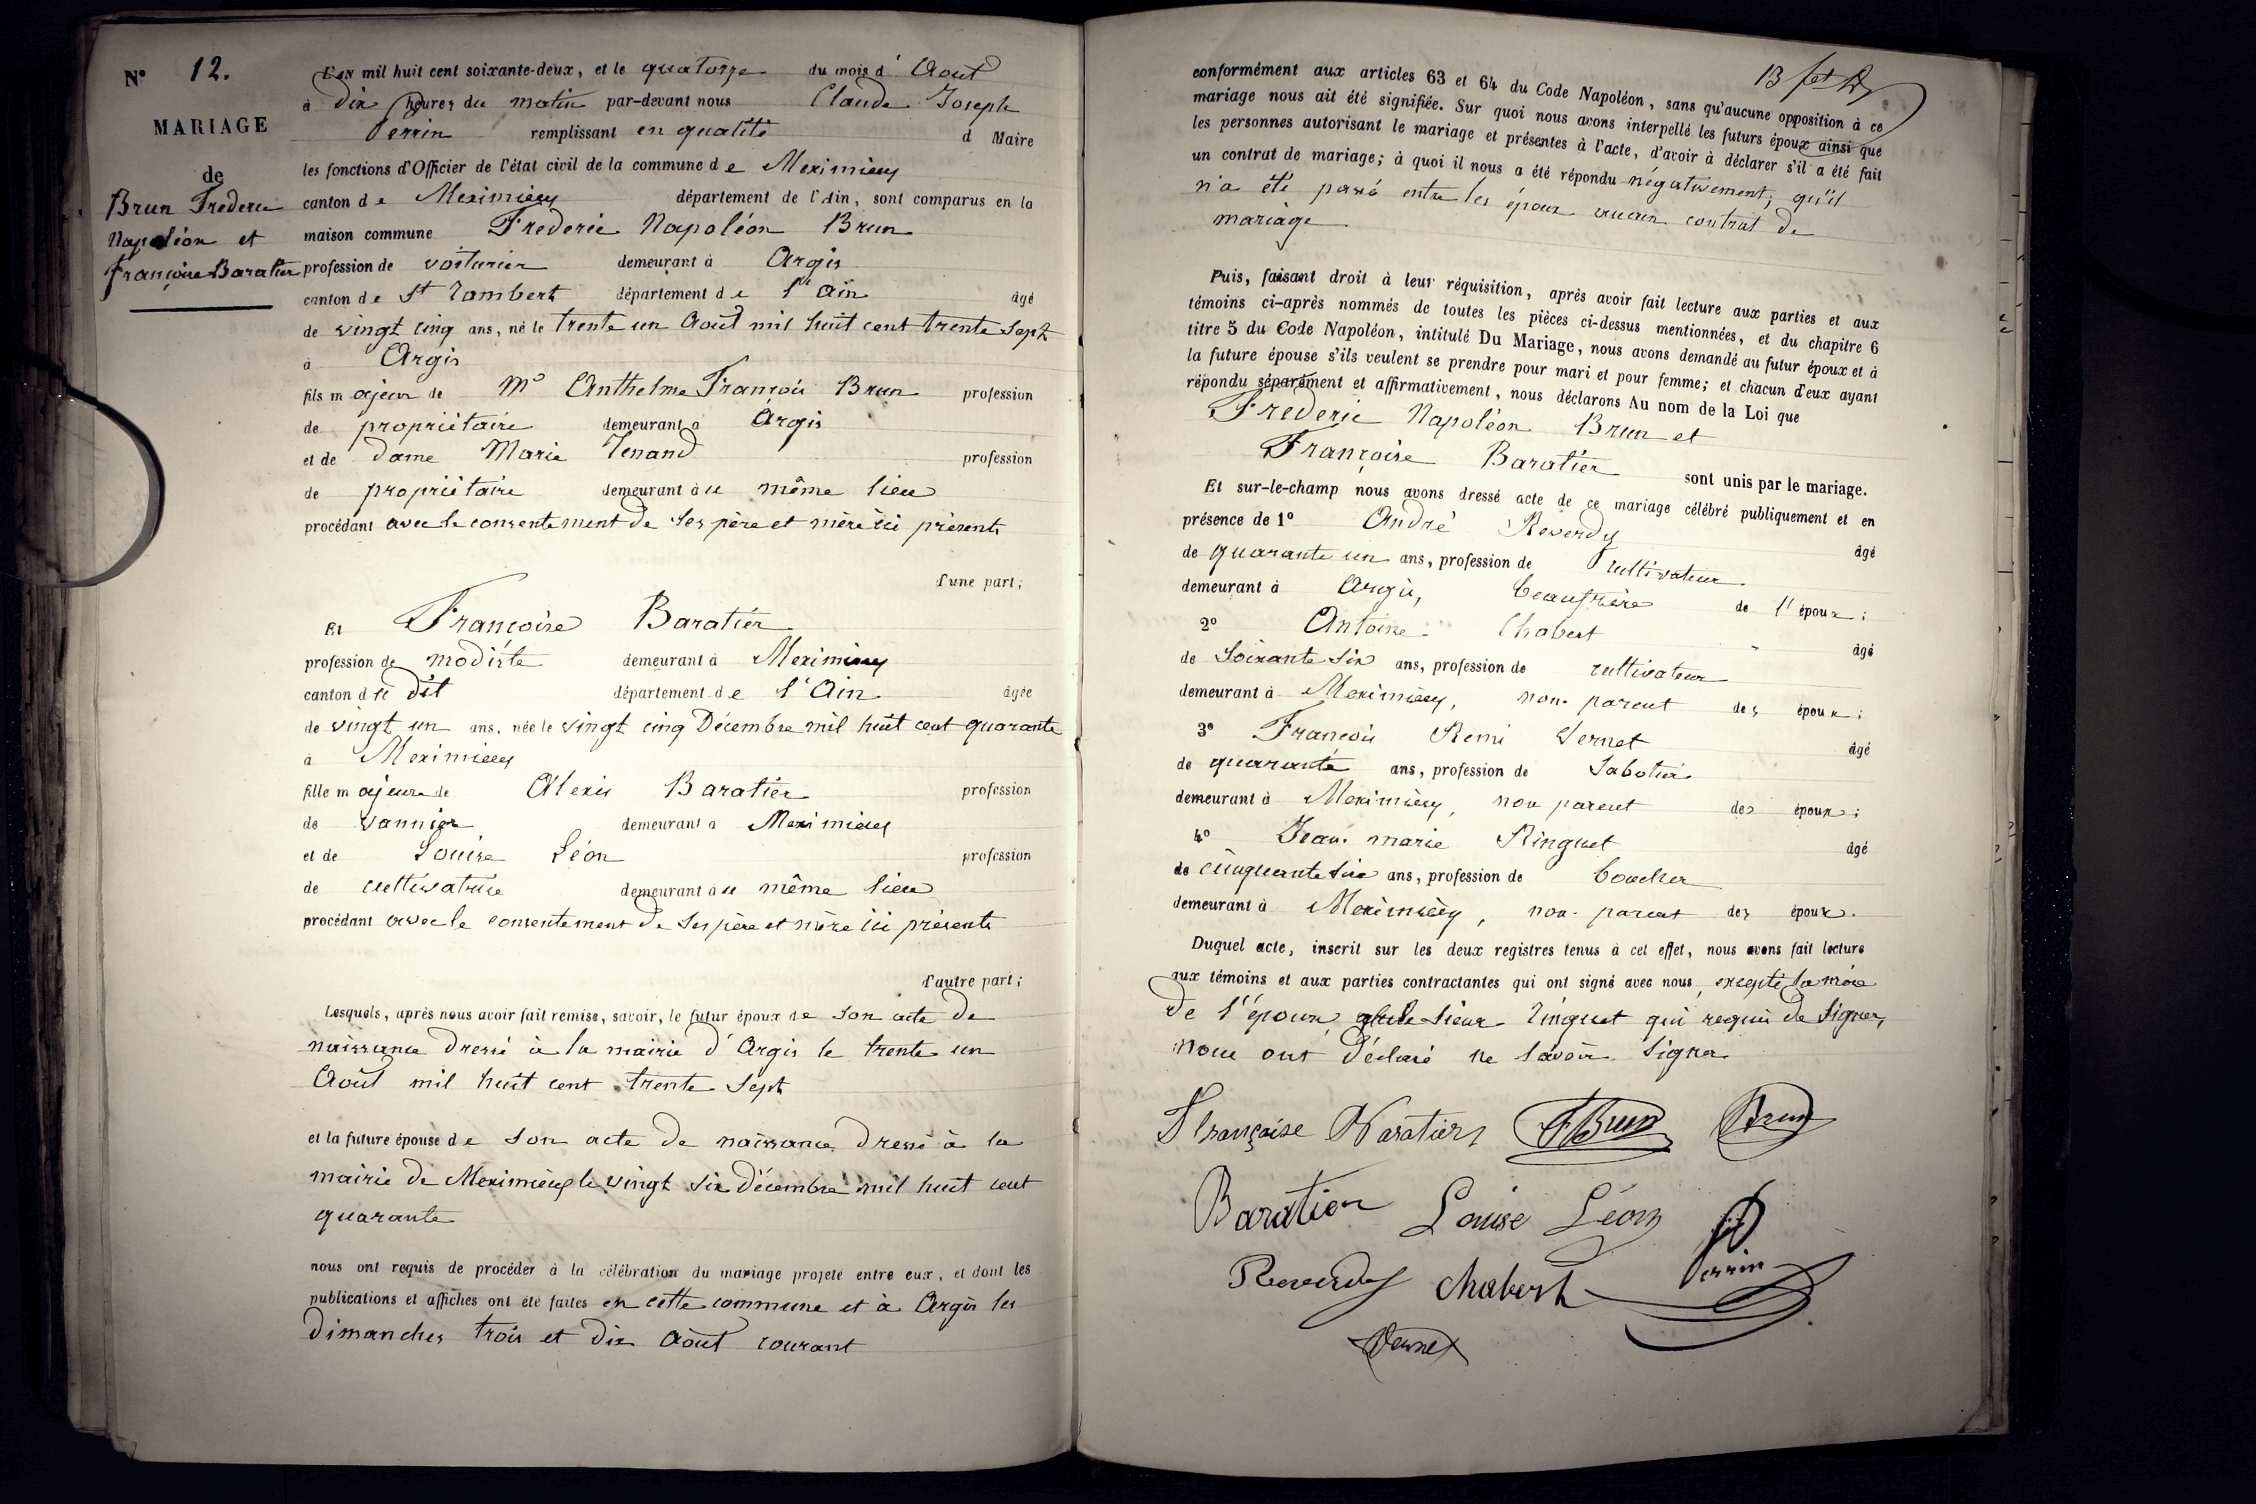 N° 12.
MARIAGE
de
Brun Frederic
Napoléon et
Françoise Baratier
L'AN mil huit cent soixante-deux, et le quatorze du mois d'Aout
à dix heures du matin par-devant nous Claude Joseph
Perrin remplissant en qualité d Maire
les fonctions d'Officier de l'état civil de la commune de Meximieux
canton de Meximieux département de l'Ain, sont comparus en la
maison commune Frederic Napoléon Brun
profession de voiturier demeurant à Argis
canton de St Rambert département de l'Ain âgé
de vingt cinq ans, né le trente un Août mil huit cent trente sept
à Argis
fils majeur de Mr Anthelme François Brun profession
de propriétaire demeurant à Argis
et de dame Marie Tenand profession
de propriétaire demeurant au même lieu
procédant avec le consentement de ses père et mère ici présents
d'une part;
Et Françoise Baratier
profession de modiste demeurant à Meximieux
canton du dit département de l'Ain âgée
de vingt un ans, née le vingt cinq Décembre mil huit cent quarante
à Meximieux
fille majeure de Alexis Baratier profession
de vannier demeurant à Meximieux
et de Louise Léon profession
de cultivatrice demeurant au même lieu
procédant avec le consentement de ses père et mère ici présents
d'autre part;
Lesquels, après nous avoir fait remise, savoir, le futur époux de son acte de
naissance dressé à la mairie d'Argis le trente un
Août mil huit cent trente sept
et la future épouse de son acte de naissance dressé à la
mairie de Meximieux le vingt six décembre mil huit cent
quarante
nous ont requis de procéder à la célébration du mariage projeté entre eux, et dont les
publications et affiches ont été faites en cette commune et à Argis les
dimanches trois et dix août courant
13
conformément aux articles 63 et 64 du Code Napoléon, sans qu'aucune opposition à ce
mariage nous ait été signifiée. Sur quoi nous avons interpellé les futurs époux ainsi que
les personnes autorisant le mariage et présentes à l'acte, d'avoir à déclarer s'il a été fait
un contrat de mariage; à quoi il nous a été répondu négativement, qu'il
n'a été passé entre les époux aucun contrat de
mariage
Puis, faisant droit à leur réquisition, après avoir fait lecture aux parties et aux
témoins ci-après nommés de toutes les pièces ci-dessus mentionnées, et du chapitre 6
titre 5 du Code Napoléon, intitulé Du Mariage, nous avons demandé au futur époux et à
la future épouse s'ils veulent se prendre pour mari et pour femme; et chacun d'eux ayant
répondu séparément et affirmativement, nous déclarons Au nom de la Loi que
Frederic Napoléon Brun et
Françoise Baratier sont unis par le mariage.
Et sur-le-champ nous avons dressé acte de ce mariage célébré publiquement et en
présence de 1° André Reverdy âgé
de quarante un ans, profession de cultivateur
demeurant à Argis, beaufrère de l'époux;
2° Antoine Chabert âgé
de soixante six ans, profession de cultivateur
demeurant à Meximieux, non parent des époux;
3° François Remi Vernet âgé
de quarante ans, profession de Sabotier
demeurant à Meximieux, non parent des époux;
4° Jean-marie Ringuet âgé
de cinquante six ans, profession de boucher
demeurant à Meximieux, non parent des époux.
Duquel acte, inscrit sur les deux registres tenus à cet effet, nous avons fait lecture
aux témoins et aux parties contractantes qui ont signé avec nous, excepté la mère
de l'époux, sieur Ringuet qui requis de signer,
nous ont déclaré ne savoir signer
Françoise Baratier FBrun Brun
Baratier Louise Léon
Reverdy Chabert Perrin
Vernet